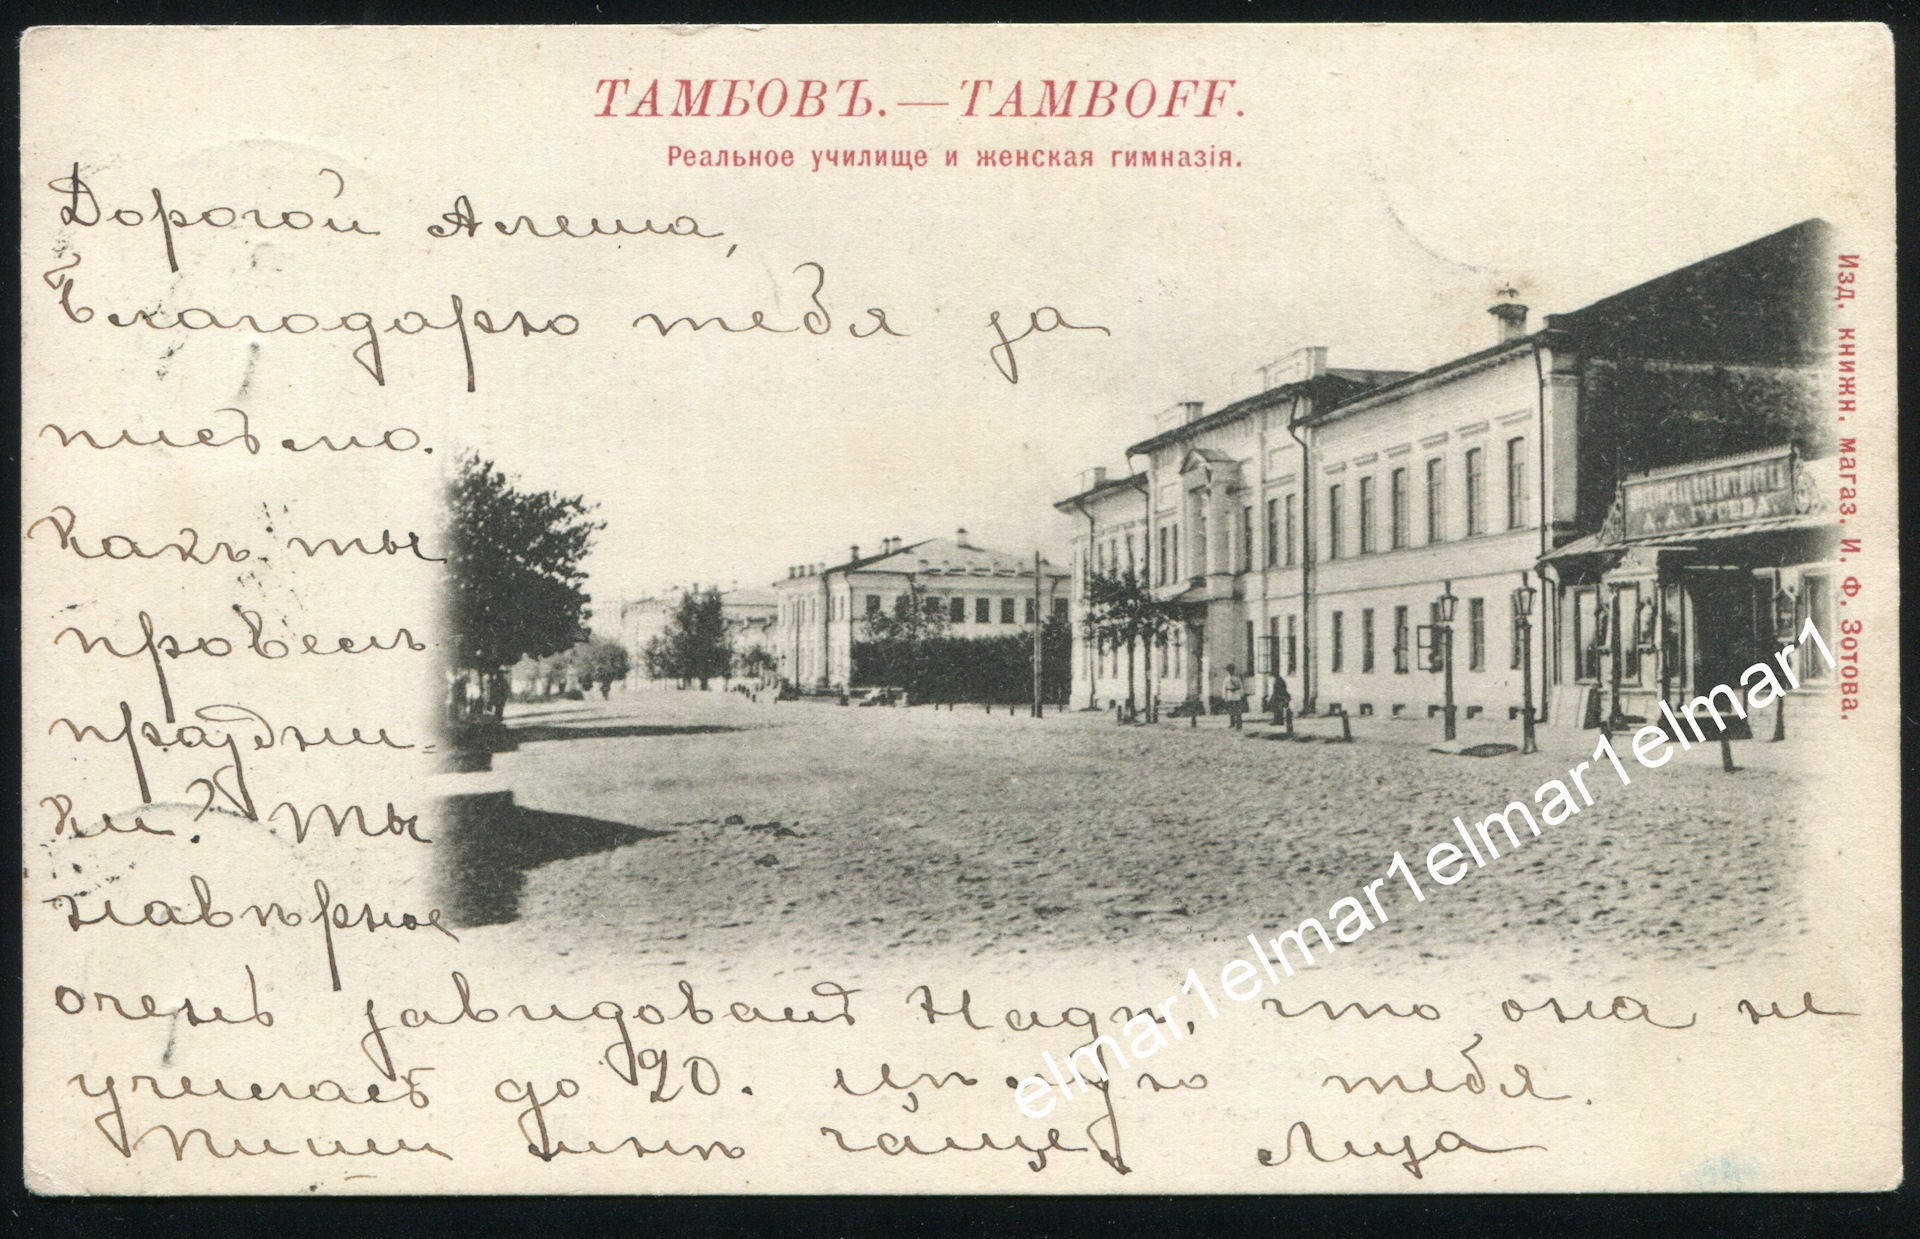 ТАМБОВЪ.—TAMBOFF.
Реальное училище и женская гимназія.
Дорогой Алеша,
Благодарю тебя за
письмо.
Какъ ты
провелъ
праздни-
ки? Ты
навѣрное
очень завидовалъ Надѣ, что она не
училась до 20. Цѣлую тебя.
Пиши мнѣ чаще. Лиза
Изд. книжн. магаз. И. Ф. Зотова.
А. А. ГУСЕВА.
elmar1elmar1elmar1elmar1elmar1elmar1